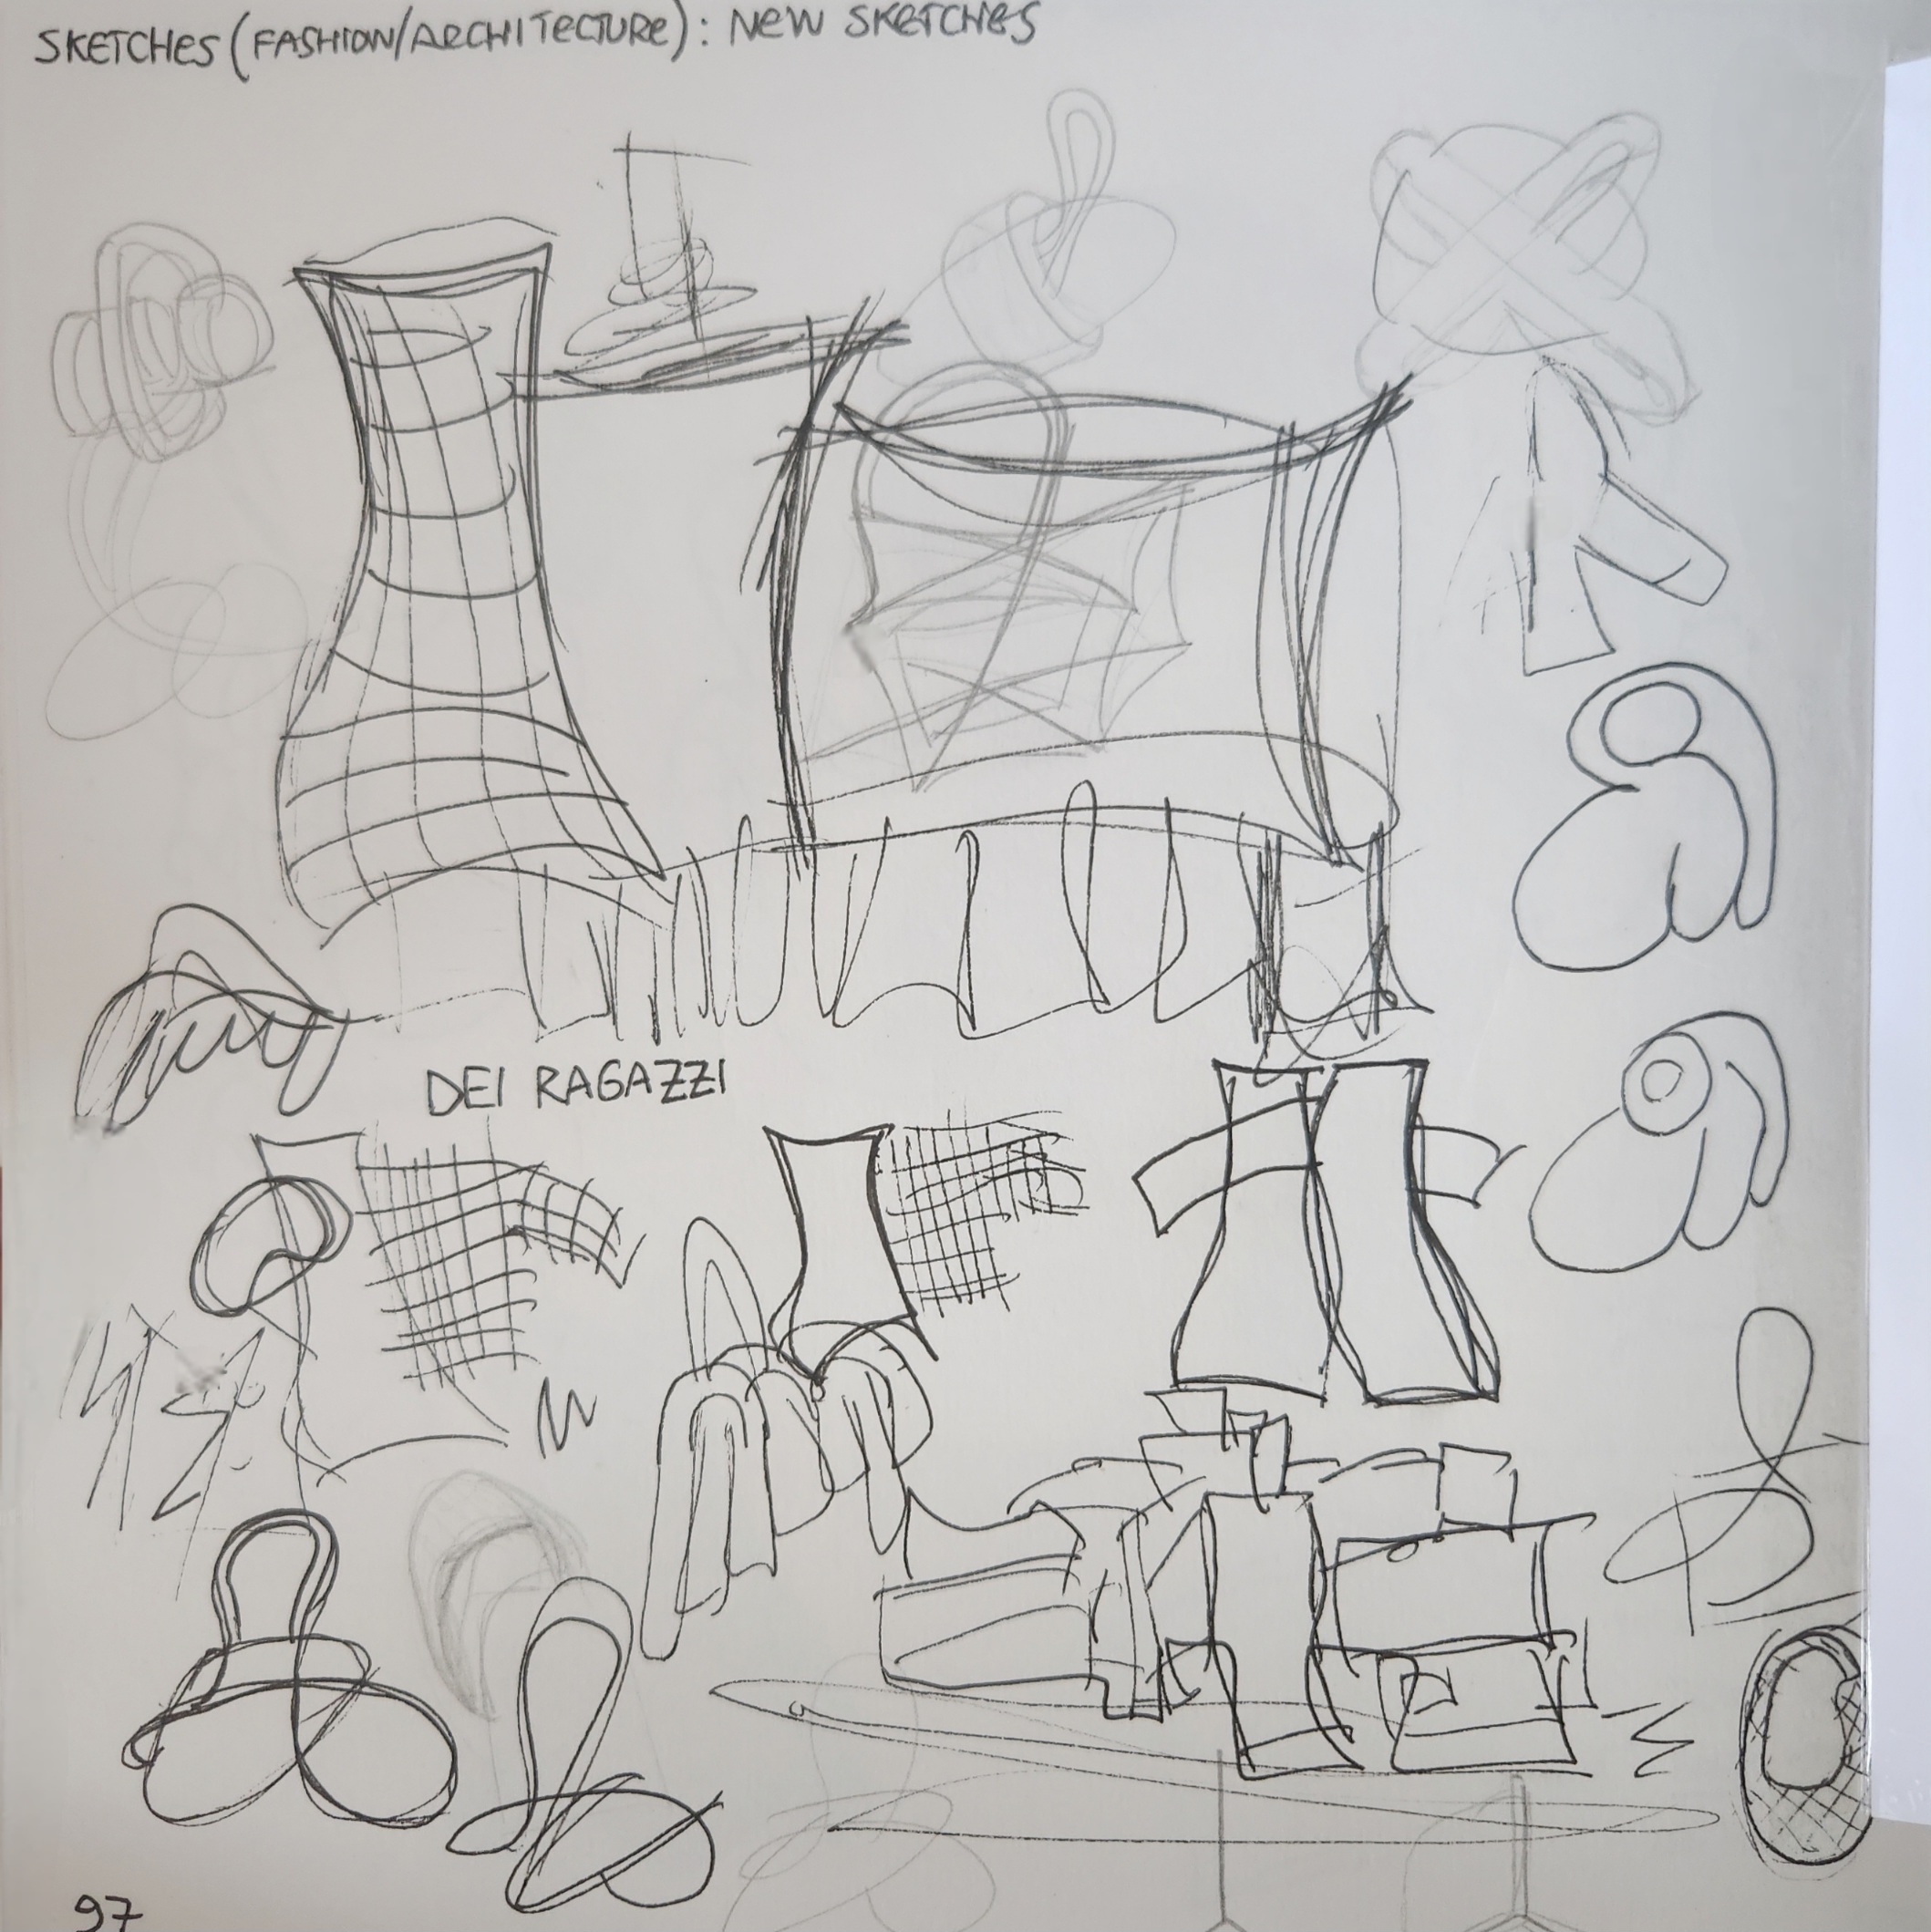 SKETCHES (FASHION/ARCHITECTURE): NEW SKETCHES
DEI RAGAZZI
97